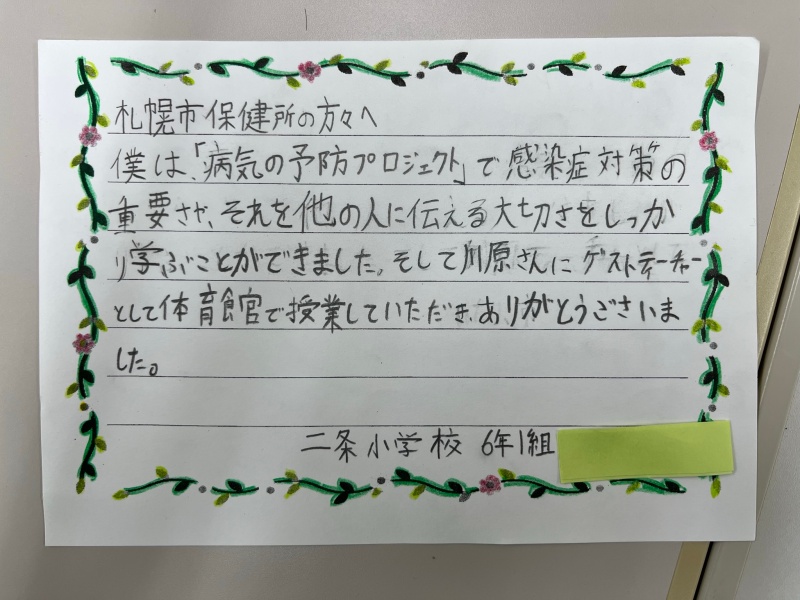 札幌市保健所の方々へ
僕は、「病気の予防プロジェクト」で感染症対策の
重要さや、それを他の人に伝える大切さをしっか
り学ぶことができました。そして川原さんにゲストティーチャー
として体育館で授業していただき、ありがとうございま
した。
二条小学校 6年1組